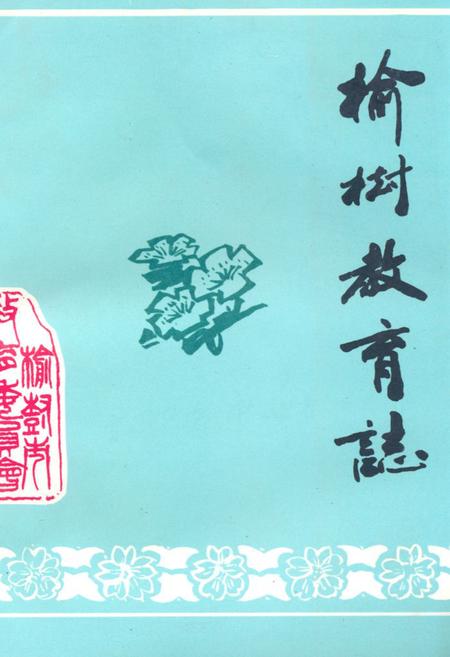 榆樹教育誌
榆樹市
委員會